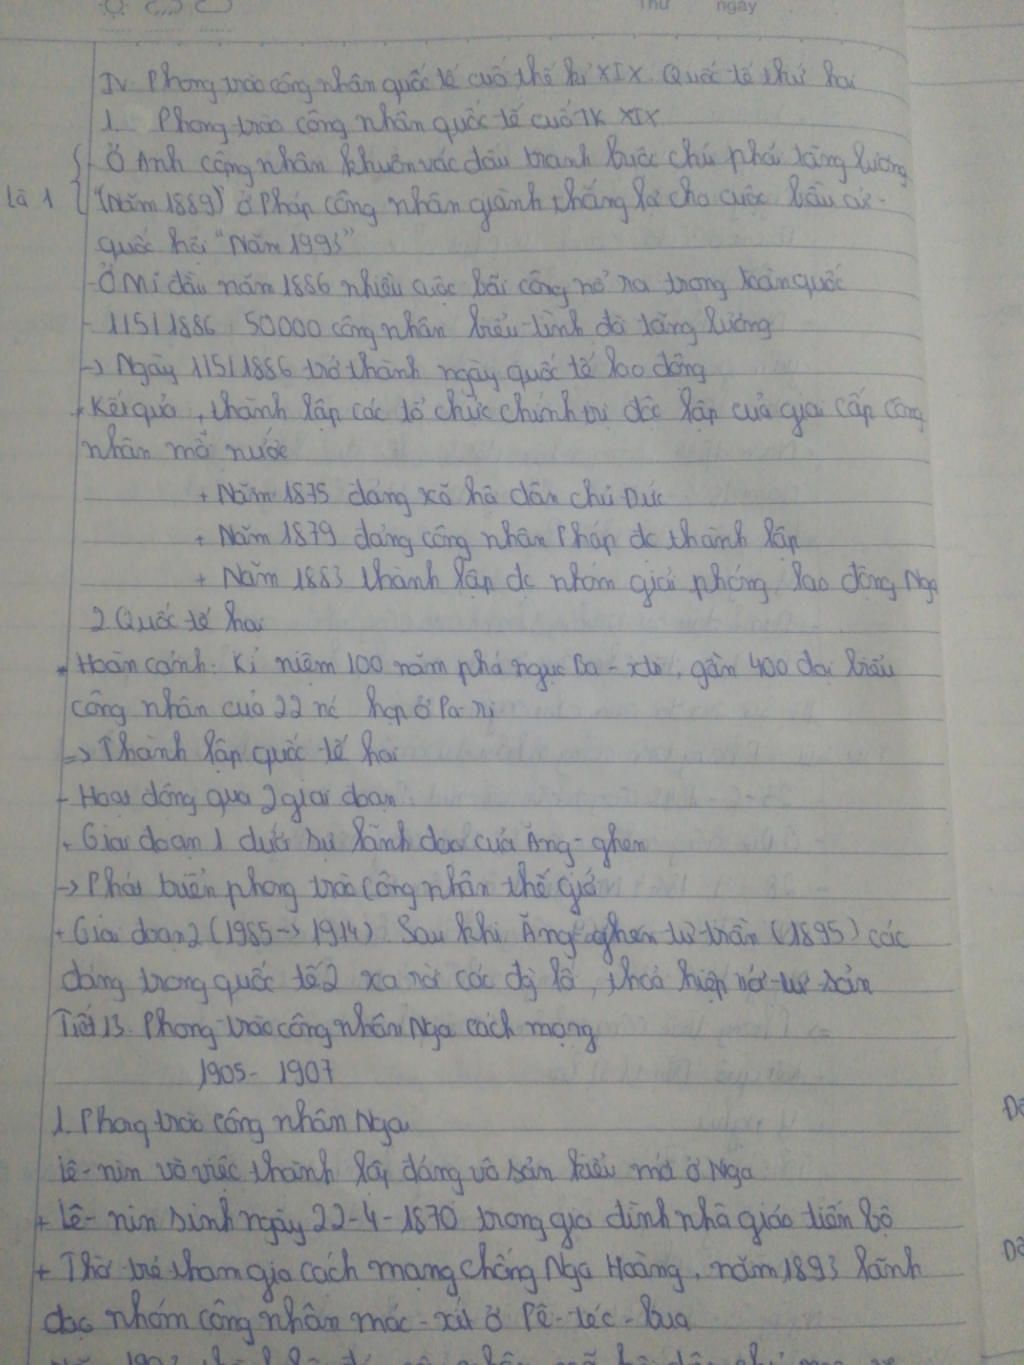 Thứ ngày
IV. Phong trào công nhân quốc tế cuối thế kỉ XIX. Quốc tế thứ hai
1. Phong trào công nhân quốc tế cuối TK XIX
- Ở Anh công nhân khuân vác đấu tranh buộc chủ phải tăng lương
Là 1 "(Năm 1889)" ở Pháp công nhân giành thắng lợi cho cuộc bầu cử
quốc hội "Năm 1993"
- Ở Mĩ đầu năm 1886 nhiều cuộc bãi công nổ ra trong toàn quốc
- 1/5/1886 50.000 công nhân biểu tình đòi tăng lương
-> Ngày 1/5/1886 trở thành ngày quốc tế lao động
* Kết quả, thành lập các tổ chức chính trị độc lập của giai cấp công
nhân mỗi nước
+ Năm 1875 đảng xã hội dân chủ Đức
+ Năm 1879 đảng công nhân Pháp dc thành lập
+ Năm 1883 thành lập dc nhóm giải phóng lao động Nga
2 Quốc tế hai
* Hoàn cảnh: Kỉ niệm 100 năm phá ngục Ba-xti, gần 400 đại biểu
công nhân của 22 nc họp ở Pa ri
=> Thành lập quốc tế hai
- Hoạt động qua 2 giai đoạn
+ Giai đoạn 1 dưới sự lãnh đạo của Ăng-ghen
-> Phát triển phong trào công nhân thế giới
+ Giai đoạn 2 (1985 -> 1914) Sau khi Ăng-ghen từ trần (1895) các
đảng trong quốc tế 2 xa rời các thoả hiệp với tư sản
Tiết 13. Phong trào công nhân Nga cách mạng
1905 - 1907
1. Phong trào công nhân Nga
Lê-nin và việc thành lập đảng vô sản kiểu mới ở Nga
+ Lê-nin sinh ngày 22-4-1870 trong gia đình nhà giáo tiến bộ
+ Thời trẻ tham gia cách mạng chống Nga Hoàng, năm 1893 lãnh
đạo nhóm công nhân mác-xít ở Pê-téc-bua